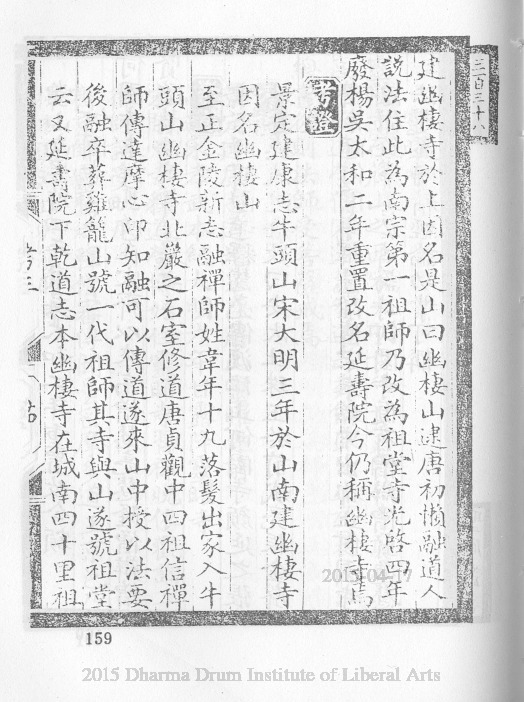 三百三十八
建幽棲寺於上因名是山曰幽棲山逮唐初懶融道人
說法住此為南宗第一祖師乃改為祖堂寺光啓四年
廢楊吳太和二年重置改名延壽院今仍稱幽棲寺焉
考證
景定建康志牛頭山宋大明三年於山南建幽棲寺
因名幽棲山
至正金陵新志融禪師姓韋年十九落髮出家入牛
頭山幽棲寺北巖之石室修道唐貞觀中四祖信禪
師傳達摩心印知融可以傳道遂來山中授以法要
後融卒葬雞龍山號一代祖師其寺與山遂號祖堂
云又延壽院下乾道志本幽棲寺在城南四十里祖
159
2015-04-17
2015 Dharma Drum Institute of Liberal Arts